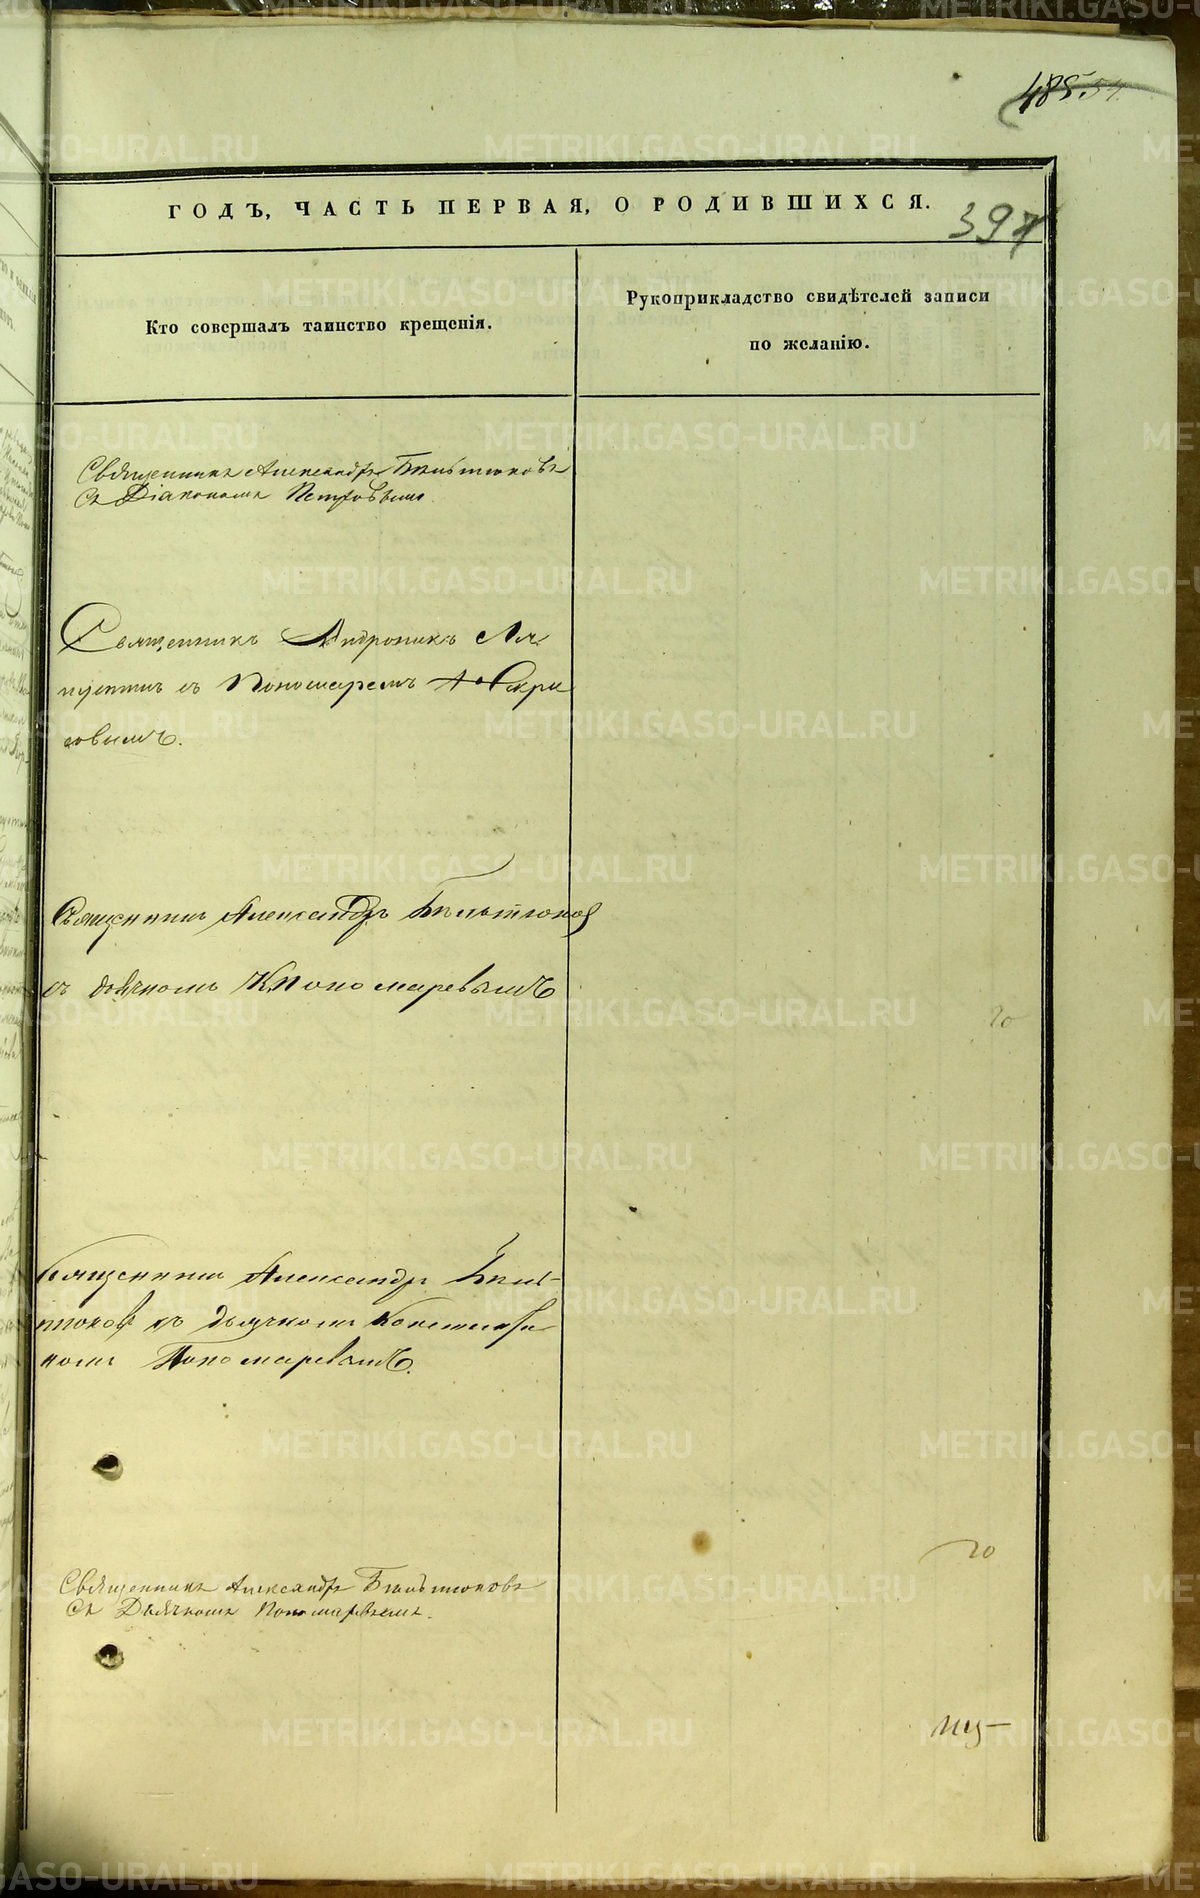 485
397
ГОДЪ, ЧАСТЬ ПЕРВАЯ, О РОДИВШИХСЯ.
Кто совершалъ таинство крещенія.
Рукоприкладство свидѣтелей записи
по желанію.
Священникъ Александръ Бѣльтюковъ
Съ Діакономъ Петровымъ
Священникъ Андроникъ Ля
пустинъ съ Пономаремъ
совымъ.
Священникъ Александръ Бѣльтюков
съ дьячкомъ К Пономаревымъ
20
Священникъ Александръ Бѣль-
тюков съ дьячкомъ Константи
номъ Пономаревымъ.
20
Священникъ Александръ Бѣльтюковъ
Съ Дьячкомъ Пономаревымъ.
METRIKI.GASO-URAL.RU